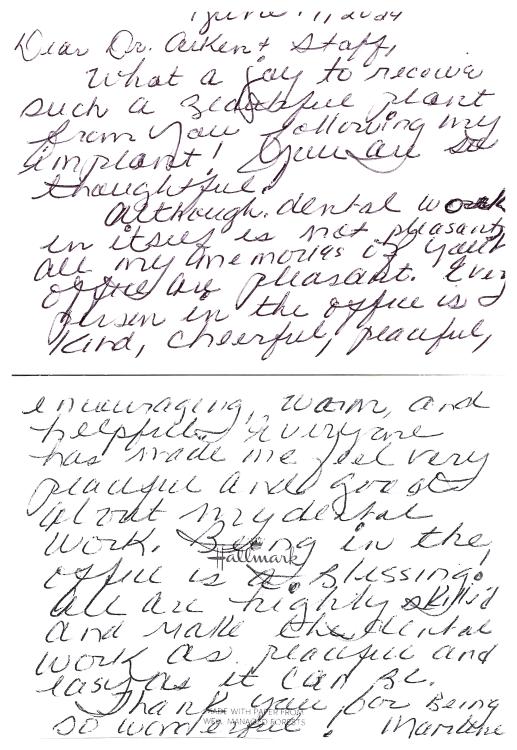 June 11, 2024
Dear Dr. Aiken + Staff,
What a joy to receive
such a beautiful plant
from you following my
implant! You are so
thoughtful.
Although dental work
in itself is not pleasant,
all my memories of your
office are pleasant. Every
person in the office is
kind, cheerful, peaceful,
encouraging, warm, and
helpful. Everyone
has made me feel very
peaceful and good
about my dental
work. Being in the
Hallmark
office is a blessing.
All are highly skilled
and make the dental
work as peaceful and
easy as it can be.
Thank you for being
MADE WITH PAPER FROM
so wonderful! Marlene
WELL MANAGED FORESTS